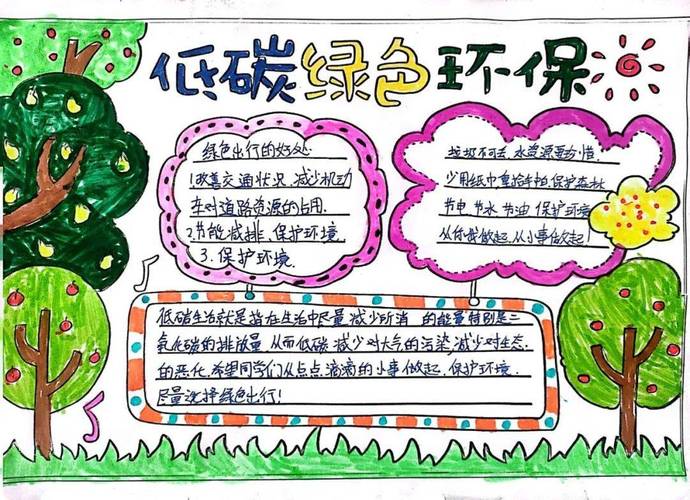 低碳绿色环保
绿色出行的好处
1.改善交通状况.减少机动
车对道路资源的占用.
2.节能减排.保护环境.
3.保护环境.
垃圾不可丢.水资源要珍惜.
少用纸巾重拾手帕.保护森林
节电 节水 节油 保护环境
从你我做起.从小事做起!
低碳生活就是指在生活中尽量减少所消 的能量特别是二
氧化碳的排放量.从而低碳.减少对大气的污染,减少对生态.
的恶化.希望同学们从点点滴滴的小事做起.保护环境.
尽量选择绿色出行!